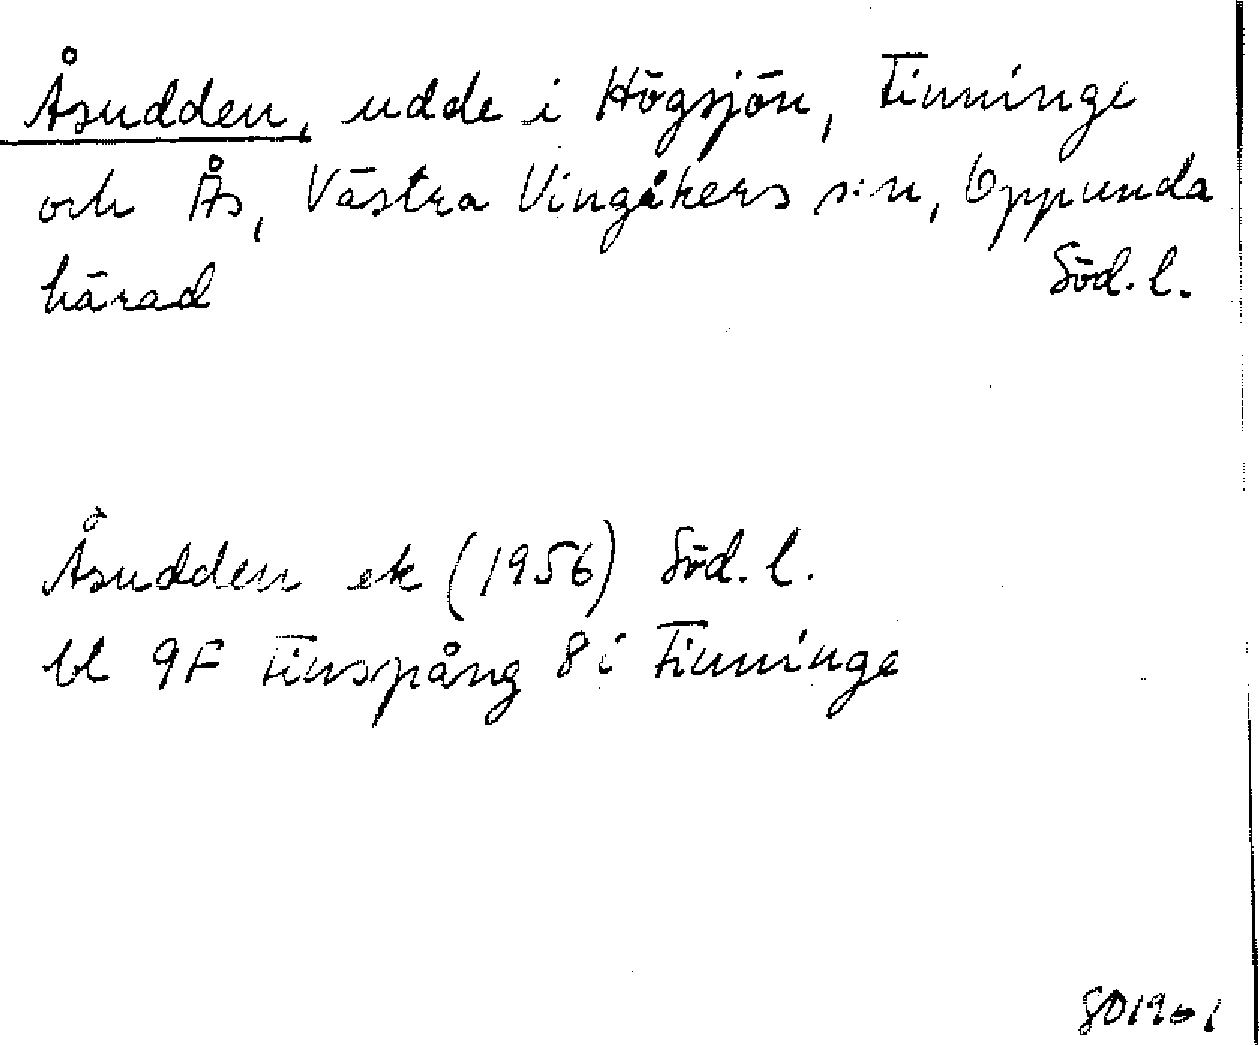 Åsudden, udde i Högsjön, Tinninge
och Ås, Västra Vingåkers s:n, Oppunda
härad Söd. l.
Åsudden ek (1956) Söd. l.
bl 9F Finspång 8 i Tinninge